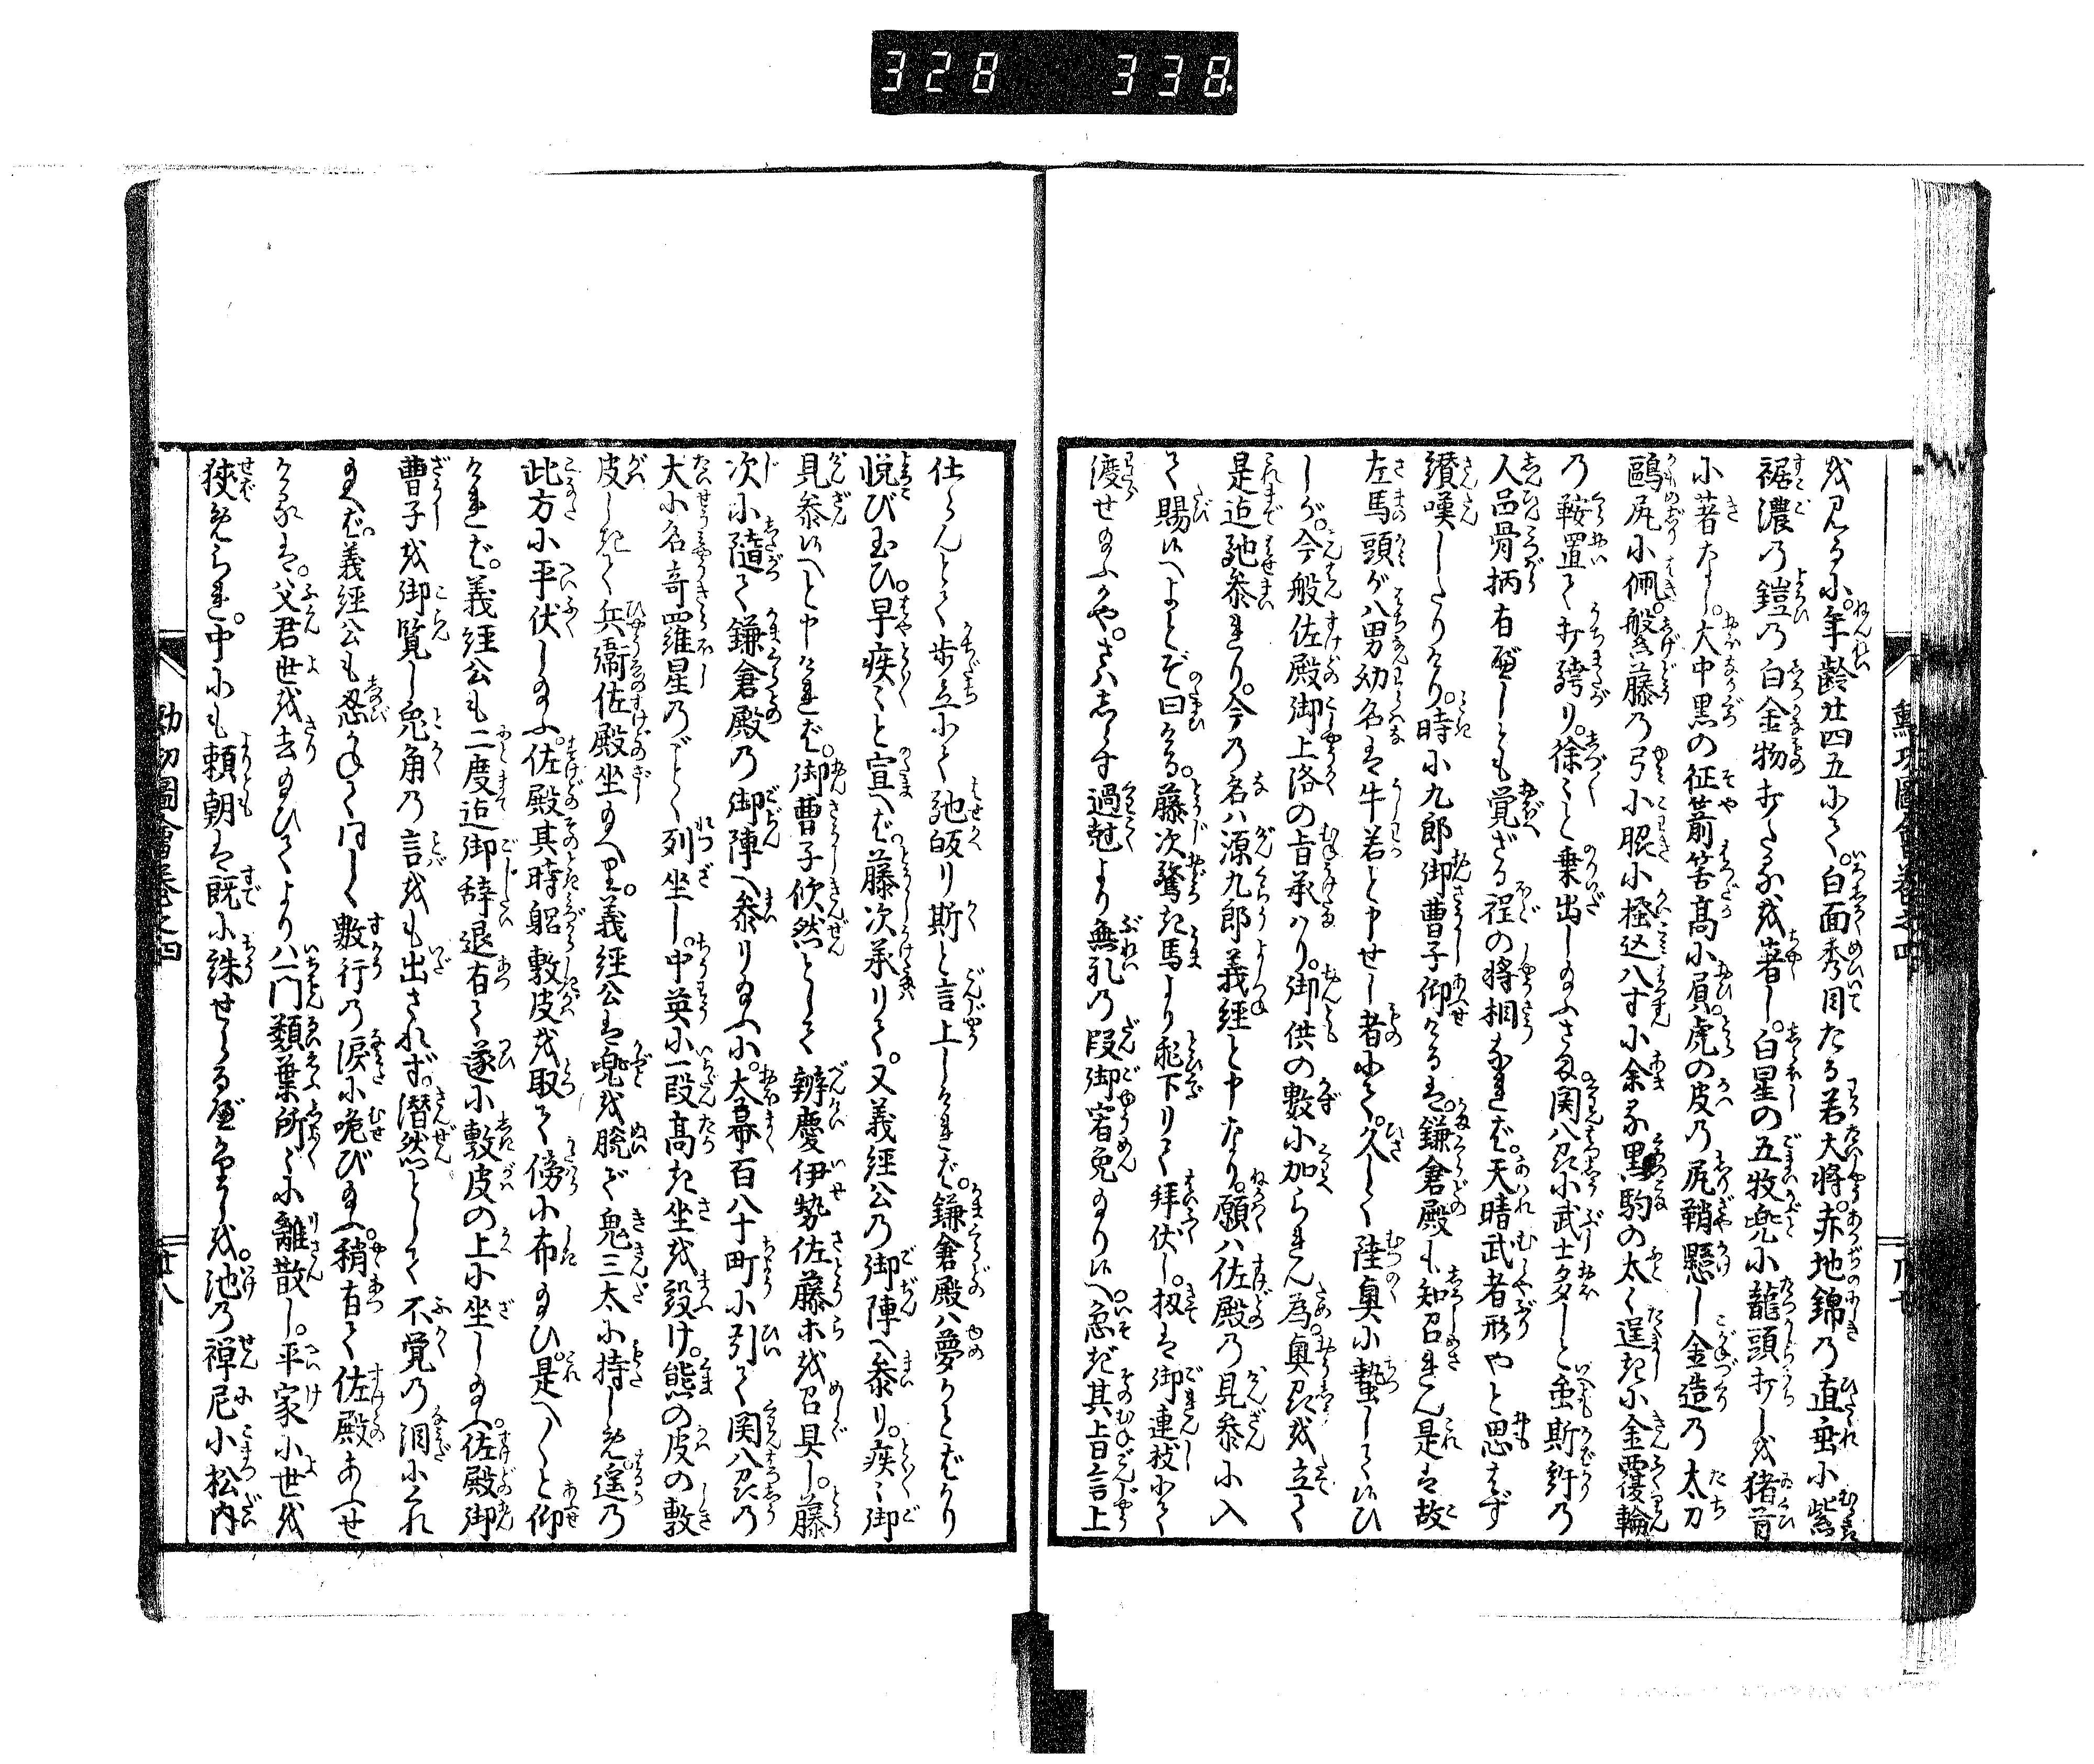 328 338
勲功圖會巻之四
を見るに。年齢廿四五にて。白面秀目たる若大将。赤地錦の直垂に紫
裾濃の鎧の白金物打たるを著し。白星の五枚兜に龍頭打しを猪首
に著なし。大中黒の征箭筈高に負。虎の皮の尻鞘懸し金造の太刀
鴎尻に佩。繁藤の弓小脇に掻込八寸に余る黒駒の太く逞きに金覆輪
の鞍置て打跨り。徐々と乗出し給ふさま。関八州に武士多しと雖斯許の
人品骨柄有べしとも覚ざる程の将相なれば。天晴武者形やと思はず
讃嘆したりけり。時に九郎御曹子仰けるは。鎌倉殿も知召れん是は故
左馬頭が八男幼名は牛若と申せし者にて。久しく陸奥に蟄して候ひ
しが。今般佐殿御上洛の旨承はり。御供の数に加らまれん為。奥州を立て
是迄馳参れり。今の名は源九郎義經と申なり。願くは佐殿の見參に入
て賜候へよとぞ曰ける。藤次驚き馬より飛下りて拝伏し。扨は御連枝にて
渡せ給ふかや。さはしらず過怠より無礼の段御宥免給り候へ。急ぎ其旨言上
仕らんとて歩立にて馳皈り斯と言上しければ。鎌倉殿は夢かとばかり
悦び玉ひ。早疾々と宣へば。藤次承りて。又義經公の御陣へ參り。疾々御
見參候へと申ければ。御曹子欣然として辨慶伊勢佐藤ホを召具し。藤
次に隨て鎌倉殿の御陣へ參り給ふに。大幕百八十町に引て関八州の
大小名竒羅星のごとく列坐し。中英に一段高き坐を設け。熊の皮の敷
皮しきて兵衞佐殿坐し給へり。義經公は兜を脱ぎ鬼三太に持しめ遥の
此方に平伏し給ふ。佐殿其時躬敷皮を取て傍に布給ひ。是へ〱と仰
ければ。義經公も二度迄御辞退有て遂に敷皮の上に坐し給へば。佐殿御
曹子を御覧じ兎角の言をも出されず。潸然として不覚の涙にくれ
給へば。義經公も忍かねて同じく數行の涙に咽び給ふ。稍有て佐殿あふせ
けるは。父君世を去給ひてより八一門類葉所々に離散し。平家に世を
狭められ。中にも頼朝は既に誅せらるべかりしを。池の禅尼小松内
勲功圖會巻之四
廿八